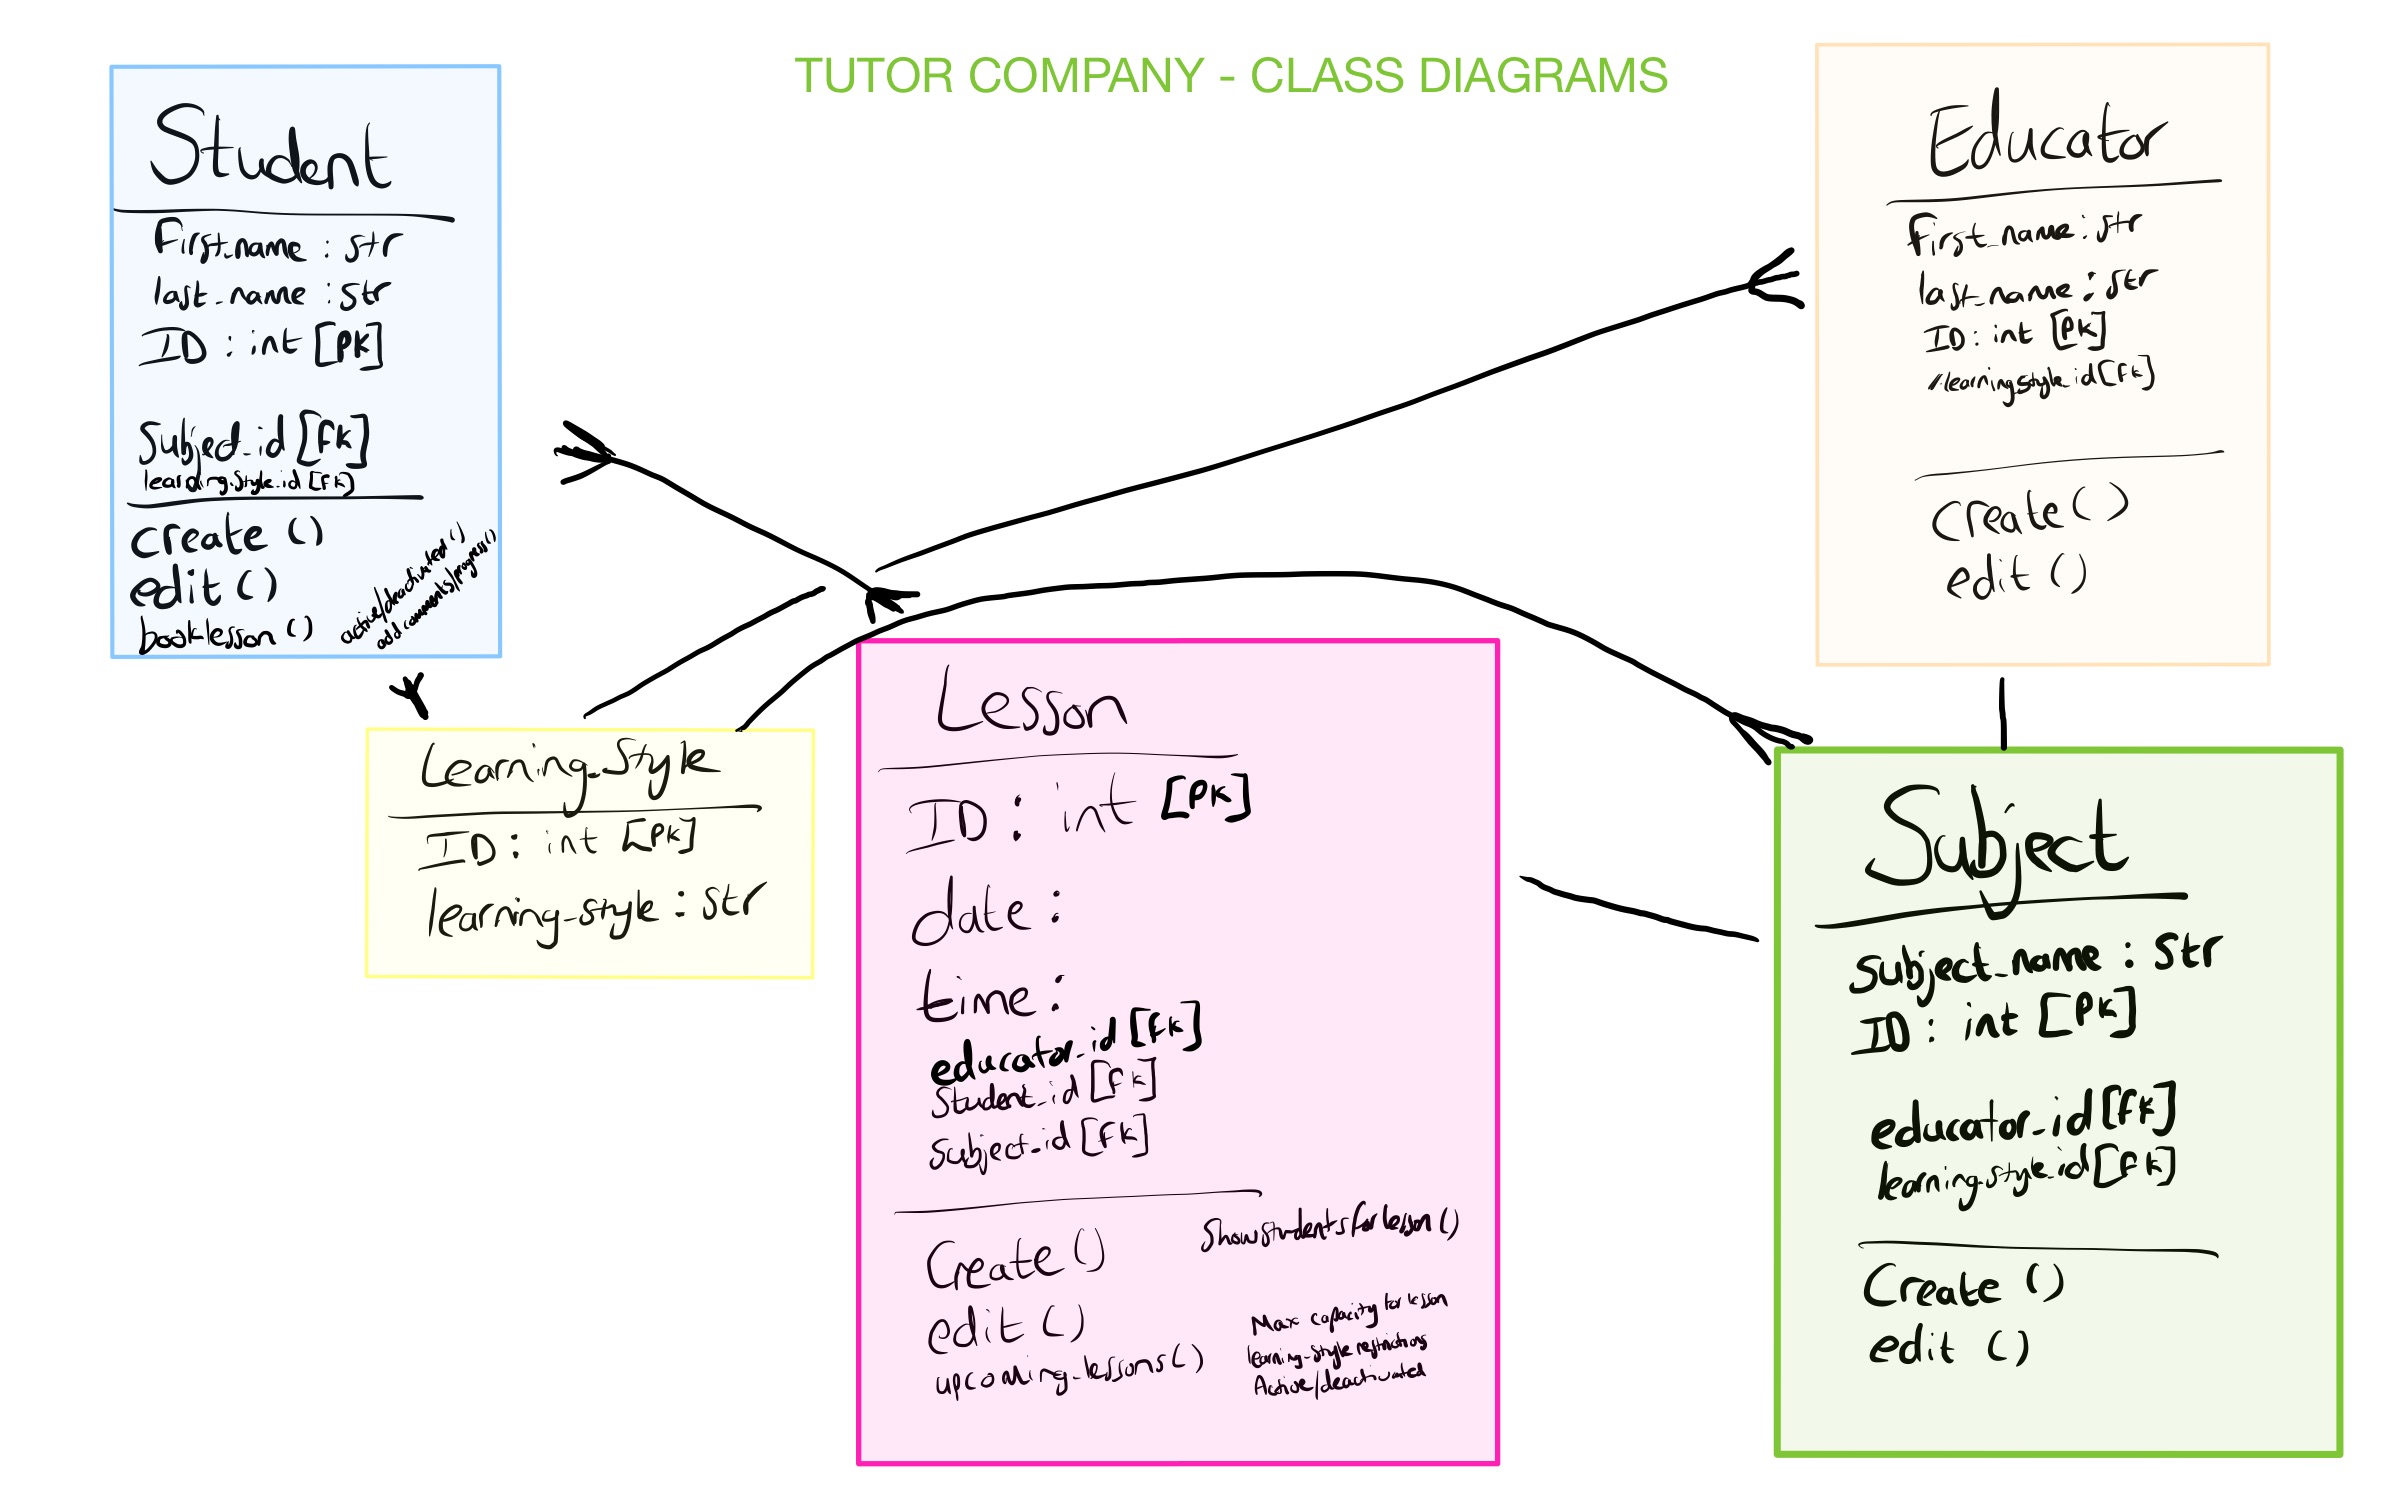 TUTOR COMPANY - CLASS DIAGRAMS
Student
First_name : str
last_name : str
ID : int [PK]
Subject_id [FK]
learning_style_id [FK]
create ()
edit ()
booklesson ()
active/deactivated ()
add comments/progress()
Educator
First_name : str
last_name : str
ID : int [PK]
learning_style_id [FK]
Create ()
edit ()
Learning_Style
ID : int [PK]
learning_style : str
Lesson
ID : int [PK]
date :
time :
educator_id [FK]
Student_id [FK]
Subject_id [FK]
Create ()
Showstudentsforlesson ()
edit ()
upcoming_lessons ()
Max capacity for lesson
learning_style restrictions
Active/deactivated
Subject
Subject_name : str
ID : int [PK]
educator_id [FK]
learning_style_id [FK]
Create ()
edit ()